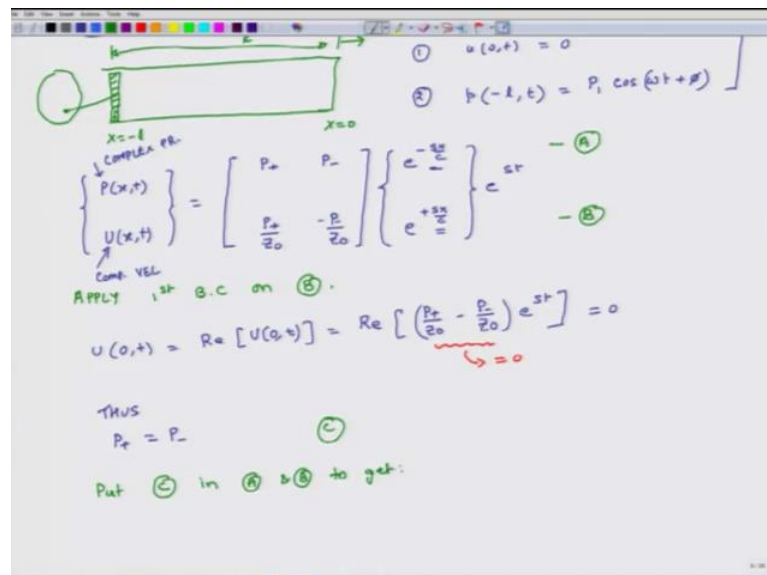 ① u(0,t) = 0
② p(-l,t) = P₁ cos(ωt + ø)
x=-l
x=0
COMPLEX PR.
{ P(x,t) U(x,t) } = [ P₊ P₋ P₊/Z₀ -P₋/Z₀ ] { e^(-sx/c) e^(+sx/c) } e^(st) - Ⓐ - Ⓑ
COMP. VEL
APPLY 1st B.C on Ⓑ.
U(0,t) = Re [U(0,t)] = Re [(P₊/Z₀ - P₋/Z₀) e^(st)] = 0
↳ = 0
THUS
P₊ = P₋ Ⓒ
Put Ⓒ in Ⓐ & Ⓑ to get: